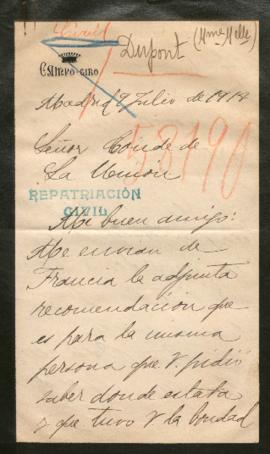 Civil
Dupont (Mme Nelle)
CASTRO-GIRO
Madrid 9 Julio de 1917
58190
Señor Conde de
La Unión
REPATRIACIÓN
CIVIL
Mi buen amigo:
Me envian de
Francia la adjunta
recomendación que
es para la misma
persona que V. pidió
saber donde estaba
y que tuvo V la bondad